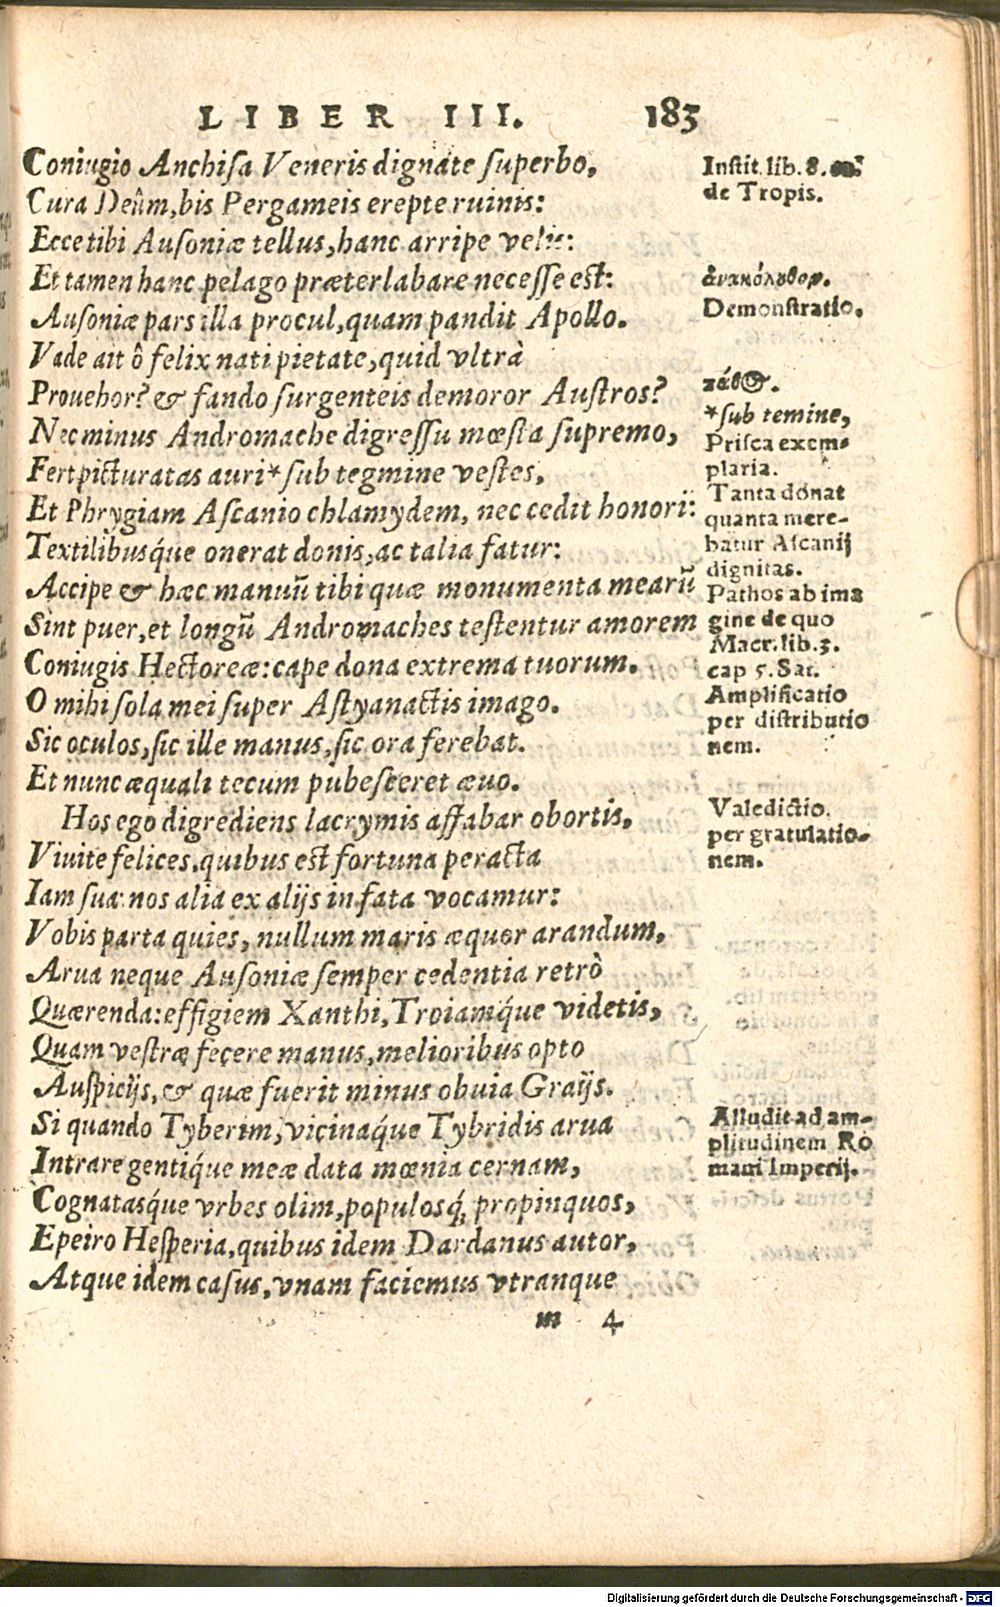 LIBER III. 183
Coniugio Anchisa Veneris dignate superbo,
Cura Deûm, bis Pergameis erepte ruinis:
Ecce tibi Ausoniæ tellus, hanc arripe velis:
Et tamen hanc pelago præterlabare necesse est:
Ausoniæ pars illa procul, quam pandit Apollo.
Vade ait ô felix nati pietate, quid vltrà
Prouehor? & fando surgenteis demoror Austros?
Nec minus Andromache digressu mœsta supremo,
Fert picturatas auri* sub tegmine vestes,
Et Phrygiam Ascanio chlamydem, nec cedit honori:
Textilibusq́ue onerat donis, ac talia fatur:
Accipe & hæc manuũ tibi quæ monumenta mearũ
Sint puer, et longũ Andromaches testentur amorem
Coniugis Hectoreæ: cape dona extrema tuorum.
O mihi sola mei super Astyanactis imago.
Sic oculos, sic ille manus, sic ora ferebat.
Et nunc æquali tecum pubesceret æuo.
Hos ego digrediens lacrymis affabar obortis,
Viuite felices, quibus est fortuna peracta
Iam sua: nos alia ex alijs in fata vocamur:
Vobis parta quies, nullum maris æquor arandum,
Arua neque Ausoniæ semper cedentia retrò
Quærenda: effigiem Xanthi, Troiamq́ue videtis,
Quam vestræ fecere manus, melioribus opto
Auspicijs, & quæ fuerit minus obuia Graijs.
Si quando Tyberim, vicinaq́ue Tybridis arua
Intrare gentiq́ue meæ data mœnia cernam,
Cognatasq́ue vrbes olim, populosq́; propinquos,
Epeiro Hesperia, quibus idem Dardanus autor,
Atque idem casus, vnam faciemus vtranque
m 4
Instit. lib. 8.
de Tropis.
ἀνακόλουθον.
Demonstratio.
πάθος.
*sub temine,
Prisca exem-
plaria.
Tanta donat
quanta mere-
batur Ascanij
dignitas.
Pathos ab ima
gine de quo
Macr. lib. 3.
cap 5. Sat.
Amplificatio
per distributio
nem.
Valedictio.
per gratulatio-
nem.
Alludit ad am-
plitudinem Ro
mani Imperij.
Digitalisierung gefördert durch die Deutsche Forschungsgemeinschaft - DFG